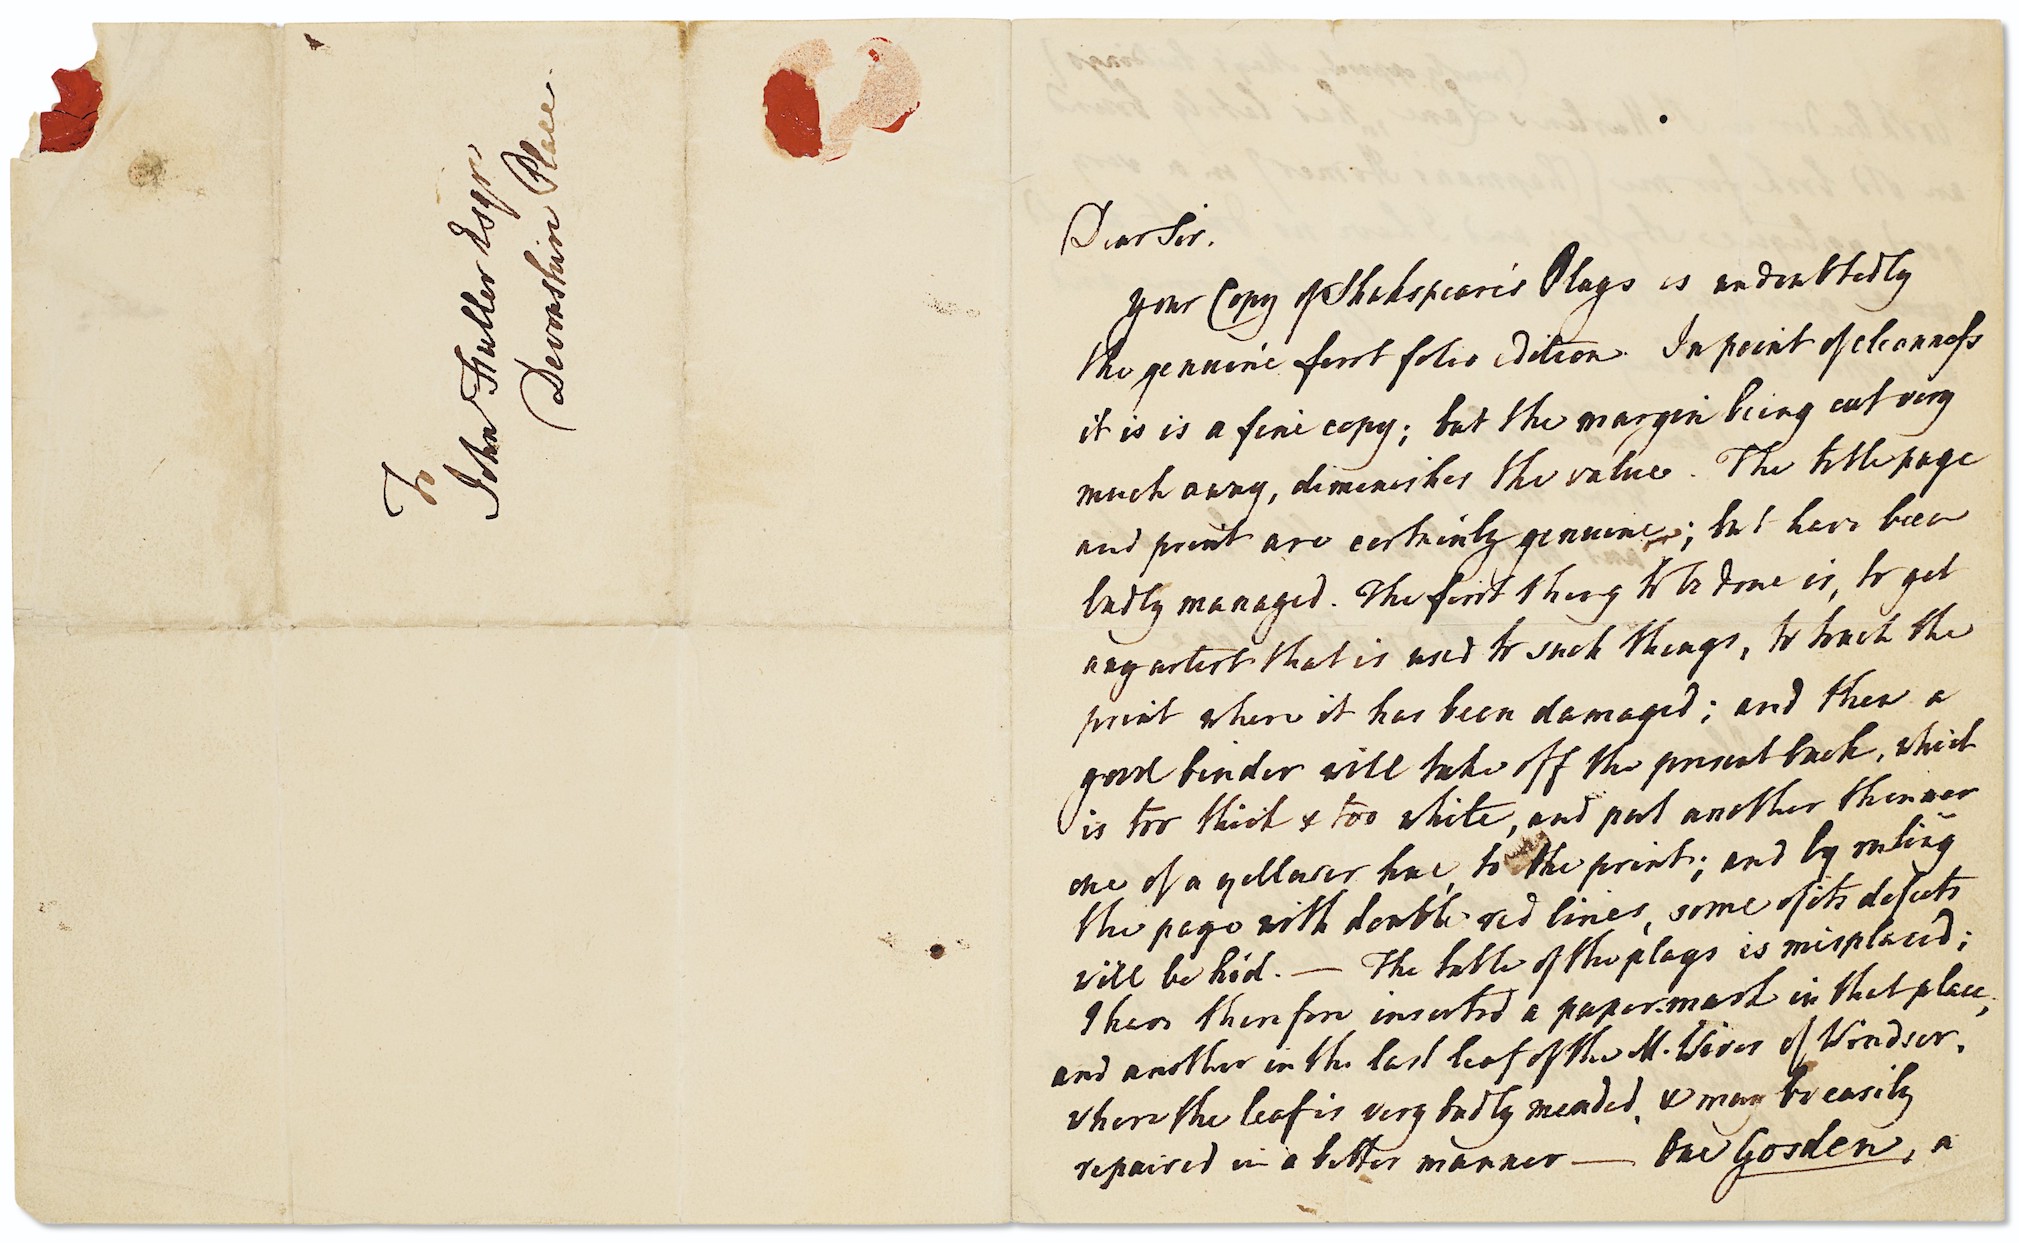 To
John Fuller Esqr.
Devonshire Place.
Dear Sir.
your Copy of Shakspeare's Plays is undoubtedly
the genuine first folio edition. In point of cleanness
it is is a fine copy; but the margin being cut very
much away, diminishes the value. The title page
and print are certainly genuine; but have been
badly managed. The first thing to be done is, to get
any artist that is used to such things, to touch the
print where it has been damaged; and then a
good binder will take off the present back, which
is too thick & too white, and put another thinner
one of a yellower hue, to the print; and by ruling
the page with double red lines, some of its defects
will be hid. — The table of the plays is misplaced;
I have therefore inserted a paper-mark in that place,
and another in the last leaf of the M. Wives of Windsor,
where the leaf is very badly mended, & may be easily
repaired in a better manner — One Gosden, a